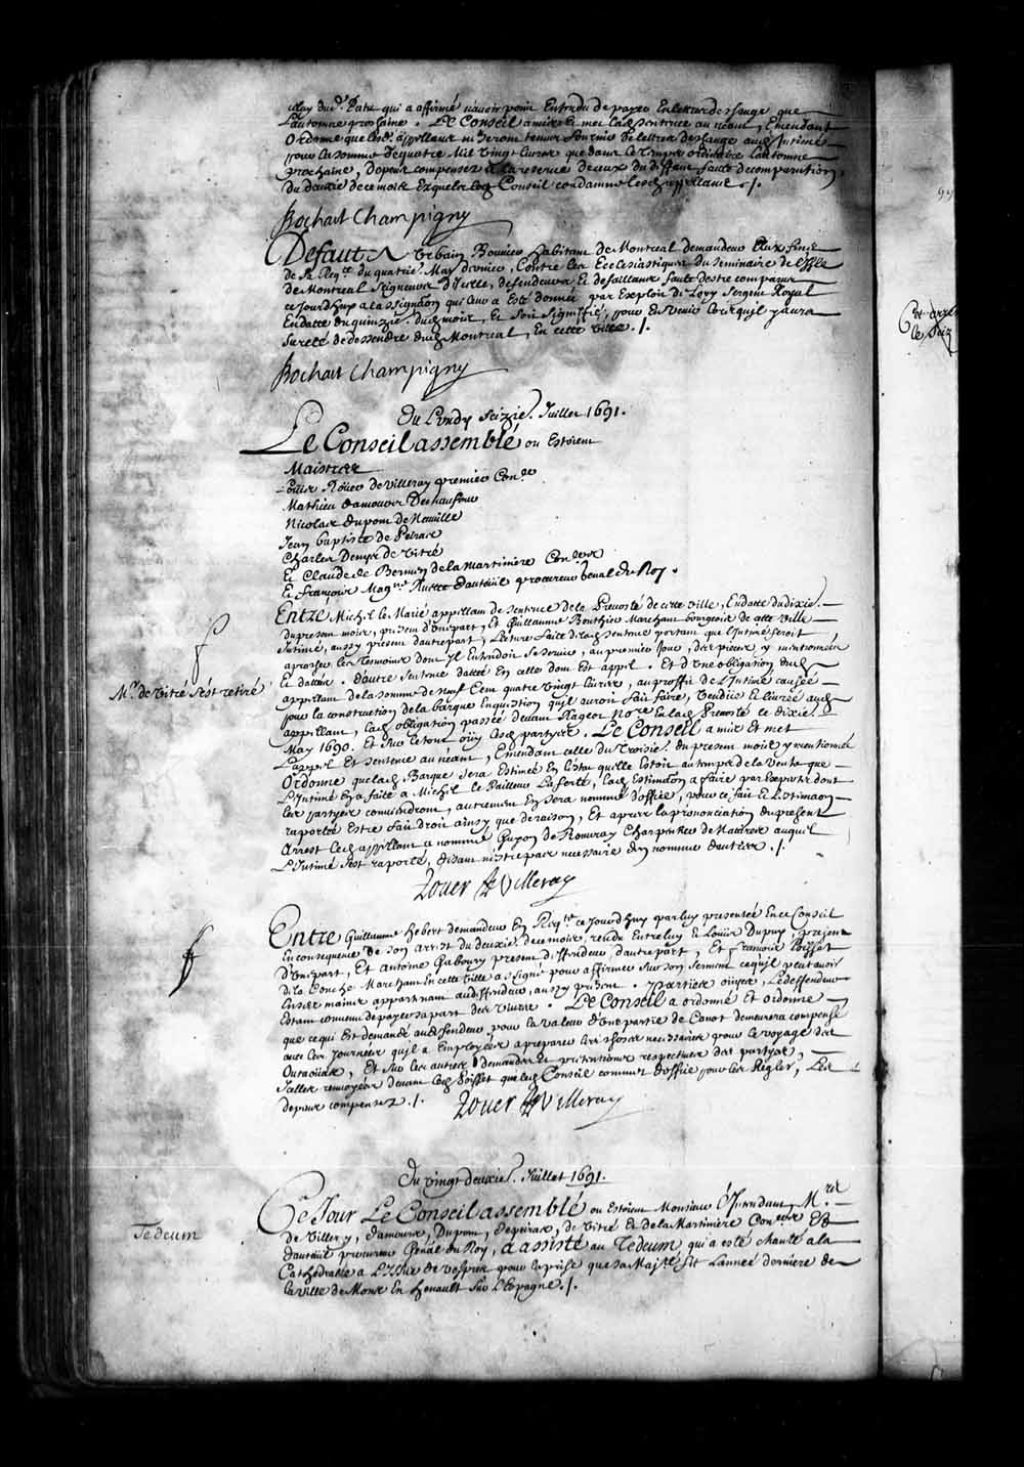 qui a affirmé n'avoir point Entendu de payer En lettres de change que
L'automne prochaine. Le Conseil a mis et met lad. sentence au neant, Emendant
Ordonne que appellans seront tenus fournir de lettres de change aud. Intimé
pour la somme de quatre Mil Vingt livres que dans le temps ordinaire L'automne
prochaine, depens compensez a la reserve de ceux du deffaut faute de comparution
du de ce mois Esquels led. Conseil condamne lesd. appellans ./.
Bochart Champigny
Defaut A Urbain Bouvier habitant de Montreal demandeur Aux fins
de Reqte. du quatrie. May dernier, Contre les Ecclesiastiques du Seminaire de
de Montreal Seigneurs de defendeurs Et defaillans faute d'estre comparus
ce Jourdhuy a l'assignaon qui leur a Esté donnée par Exploit de Lory Sergent Royal
En datte du quinzie. dud. mois, Et soit signiffié, pour En Venir Lorsquil y aura
sureté de dessendre dud. Montreal, En cette Ville ./.
Bochart Champigny
Du Lundy seizie. Juillet 1691.
Le Conseil assemblé ou Estoient
Maistres
Roüer de Villeray premier Coner
Mathieu damours Deschaufour
Nicolas dupont de Neuville
Jean baptiste de Peiras
Charles Denys de Vitré
Et Claude de Bermen de la Martiniere Coners
Et françois Magne Ruette dauteüil procureur genal du Roy.
Mr. de Vitré s'est retiré
Entre Michel le Marié appellant de sentence de la Prevosté de cette ville, En datte du dixie.
du present mois, present d'Une part, Et Guillaume Bouthier Marchant bourgeois de cette ville
Intimé, aussy present dautre part, Lecture faite de lad. sentence portant que l'Intimé feroit
aprocher les tesmoins dont Il Entendoit se servir, au premier Jour, des pieces y mentionnées
Et dattées. dautre sentence dattée En celle dont est appel. Et d'Une obligation dud.
appellant de la somme de neuf Cent quatre Vingt livres, au proffit de l'Intimé causée
pour la construction de la barque En question quil auroit fait faire, Vendüe Et livrée aud.
appellant, lad. obligation passée devant Rageot Nore En lad. Prevosté le dixie.
May 1690. Et sur le tout oüy lesd. partyes. Le Conseil a mis Et met
L'appel Et sentence au neant, Emendant celle du Troisie. du present mois y mentionnée
Ordonne que lad. Barque sera Estimée En l'Estat quelle Estoit au temps de la Vente que
L'Intimé En a faite a Michel le Pailleur Laferté, lad. Estimaon a faire par Experts dont
les partyes conviendront, autrement En sera nommé d'office, pour ce fait Et l'Estimaon
raportée Estre fait droit ainsy que de raison, Et apres la prononciation du present
Arrest led. appellant a nommé Guyon de Rouvray Charpentier de Navires auquel
L'Intimé s'est raporté, disant n'estre pas necessaire d'en nommer dautres ./.
Roüer de Villeray
Entre Guillaume hebert demandeur En Reqte ce Jourdhuy par luy presentée En ce Conseil
En consequence de son arrest du deuxie. de ce mois, rendu Entre luy Et Loüis Dupuy, present
d'Une part, Et Antoine Gaboury present deffendeur dautre part, Et françois Poisset
de la Conche Marchant En cette Ville assigné pour affirmer sur son serment ce quil peut avoir
En ses mains appartenant aud. deffendeur, aussy present. Parties oüyes, Ledeffendeur
Estant convenu de payer sa part des vivres. Le Conseil a ordonné Et ordonne
que ce qui Est demandé aud. deffendeur pour la valeur d'Une partie de Canot demeurera compensé
avec les Journées quil a Employées a preparer les choses necessaires pour le Voyage des
Outaoüas, Et sur les autres demandes Et pretentions respectives des partyes,
Icelles renvoyées devant led. Poisset que led. Conseil commet d'office pour les Regler, Les
depens compensez ./.
Roüer de Villeray
Du vingt deuxie. Juillet 1691.
Tedeum
Ce Jour Le Conseil assemblé ou Estoient Monsieur l'Intendant, Mrs.
de Villeray, damours, Dupont, depeiras, de Vitré Et de la Martiniere Coners Et
dauteüil procureur Genal du Roy, a assisté au Tedeum qui a esté chanté a la
Cathedralle a l'Issüe de Vespres pour la prise que sa Majté fit l'année derniere de
la Ville de Mons En henault sur L'Espagne ./.